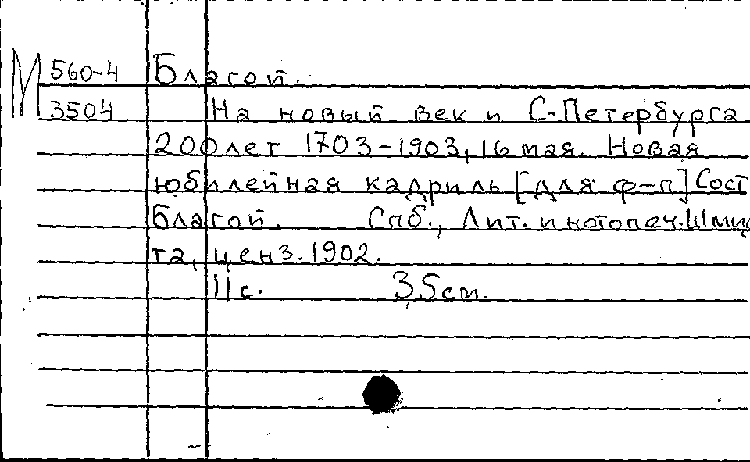 М 560-4 Благой.
3504 На новый век и С-Петербурга
200 лет 1703-1903, 16 мая. Новая
юбилейная кадриль [для ф-п] Сост
Благой. Спб., Лит. и нотопеч. Шмид
та, ценз. 1902.
11 с. 35 см.